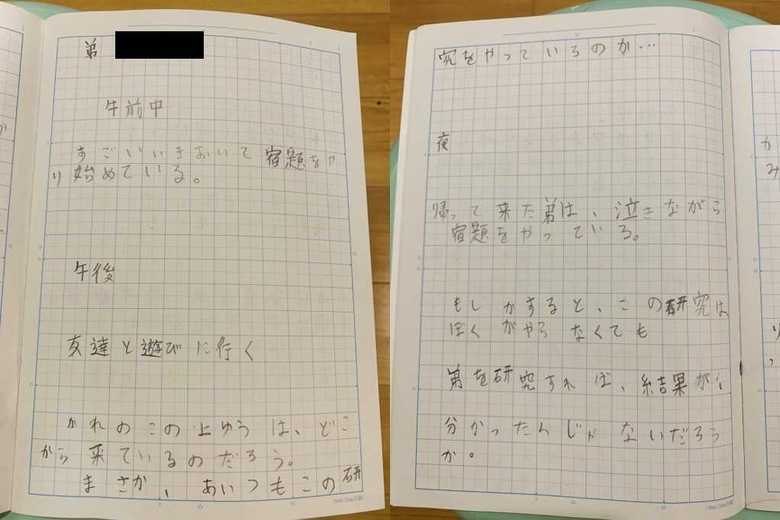 弟
午前中
すごいいきおいて宿題をや
り始めている。
午後
友達と遊びに行く
かれのこの上ゆうは、どこ
から来ているのだろう。
まさか、あいつもこの研
究をやっているのか…
夜
帰って来た弟は、泣きながら
宿題をやっている。
もしかすると、この研究は
ぼくがやらなくても
弟を研究すれば、結果が
分かったんじゃないだろう
か。